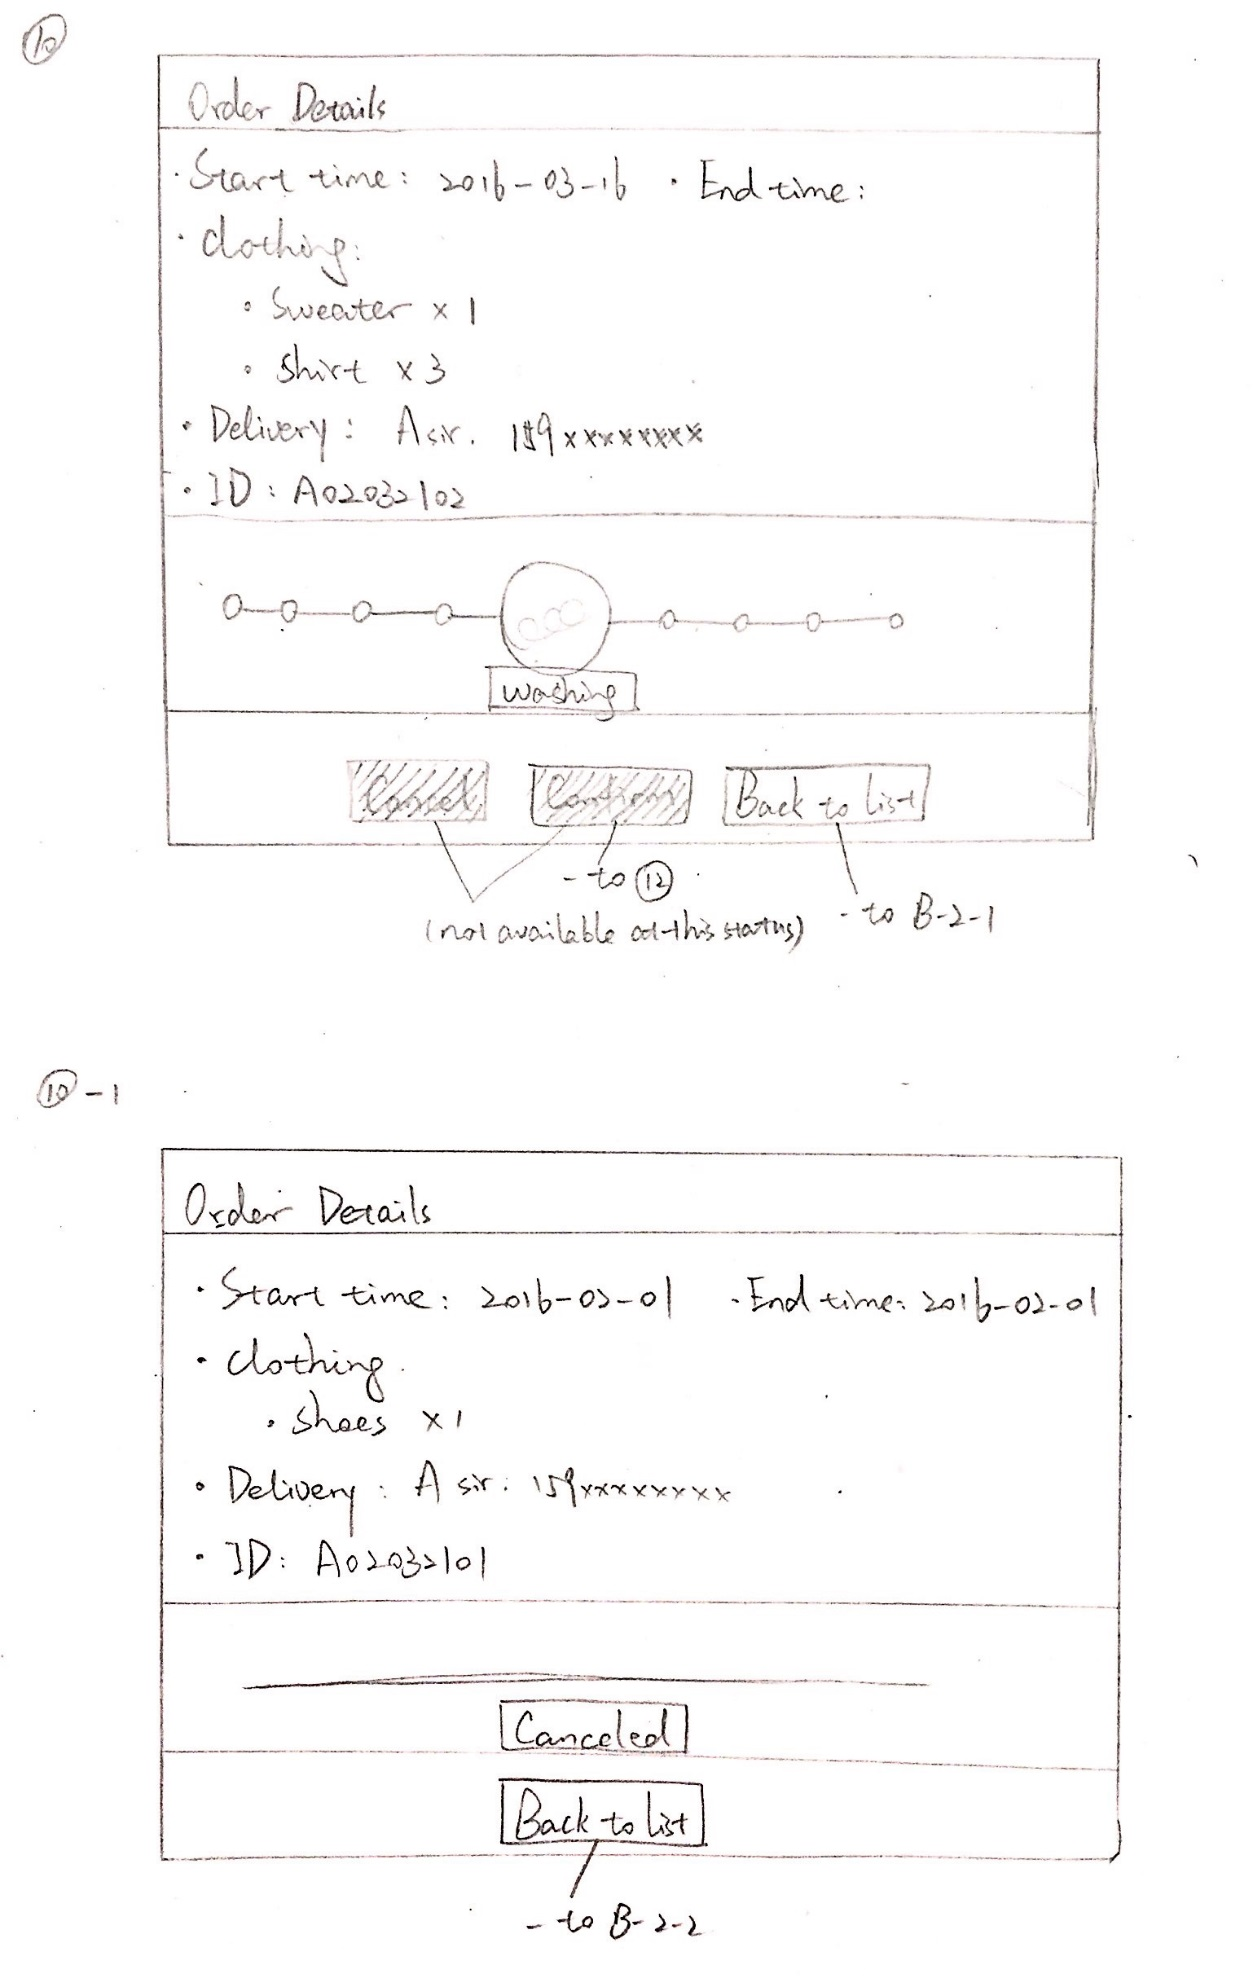 ⑩
Order Details
· Start time: 2016-03-16 · End time:
· clothing:
∘ Sweater × 1
∘ shirt × 3
· Delivery: A sir. 159xxxxxxxx
· ID: A02032102
washing
Cancel Confirm Back to list
- to ⑫
(not available at this status) - to B-2-1
⑩-1
Order Details
· Start time: 2016-02-01 · End time: 2016-02-01
· clothing.
· shoes ×1
· Delivery: A sir: 159xxxxxxxx
· ID: A02032101
Canceled
Back to list
- to B-2-2